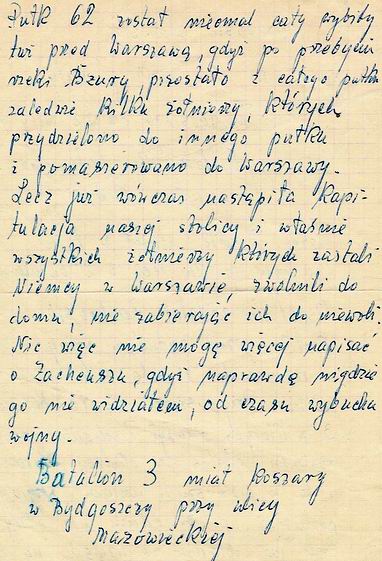 Pułk 62 został nieomal cały wybity
tuż przed Warszawą, gdyż po przebyciu
rzeki Bzury, pozostało z całego pułku
zaledwie kilku żołnierzy, których
przydzielono do innego pułku
i pomaszerowano do Warszawy.
Lecz już wówczas nastąpiła kapi-
tulacja naszej stolicy i właśnie
wszystkich żołnierzy których zastali
Niemcy w Warszawie, zwolnili do
domu, nie zabierając ich do niewoli.
Nic więc nie mogę więcej napisać
o Zacheuszu, gdyż naprawdę nigdzie
go nie widziałem, od czasu wybuchu
wojny.
Batalion 3 miał koszary
w Bydgoszczy przy ulicy
Mazowieckiej